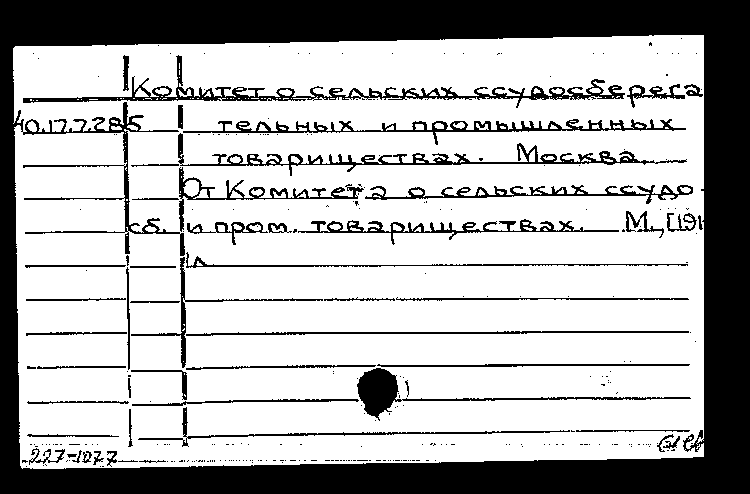 Комитет о сельских ссудосберега
40.17.7.285 тельных и промышленных
товариществах. Москва.
От Комитета о сельских ссудо-
сб. и пром. товариществах. М., [191
1л
227-1077